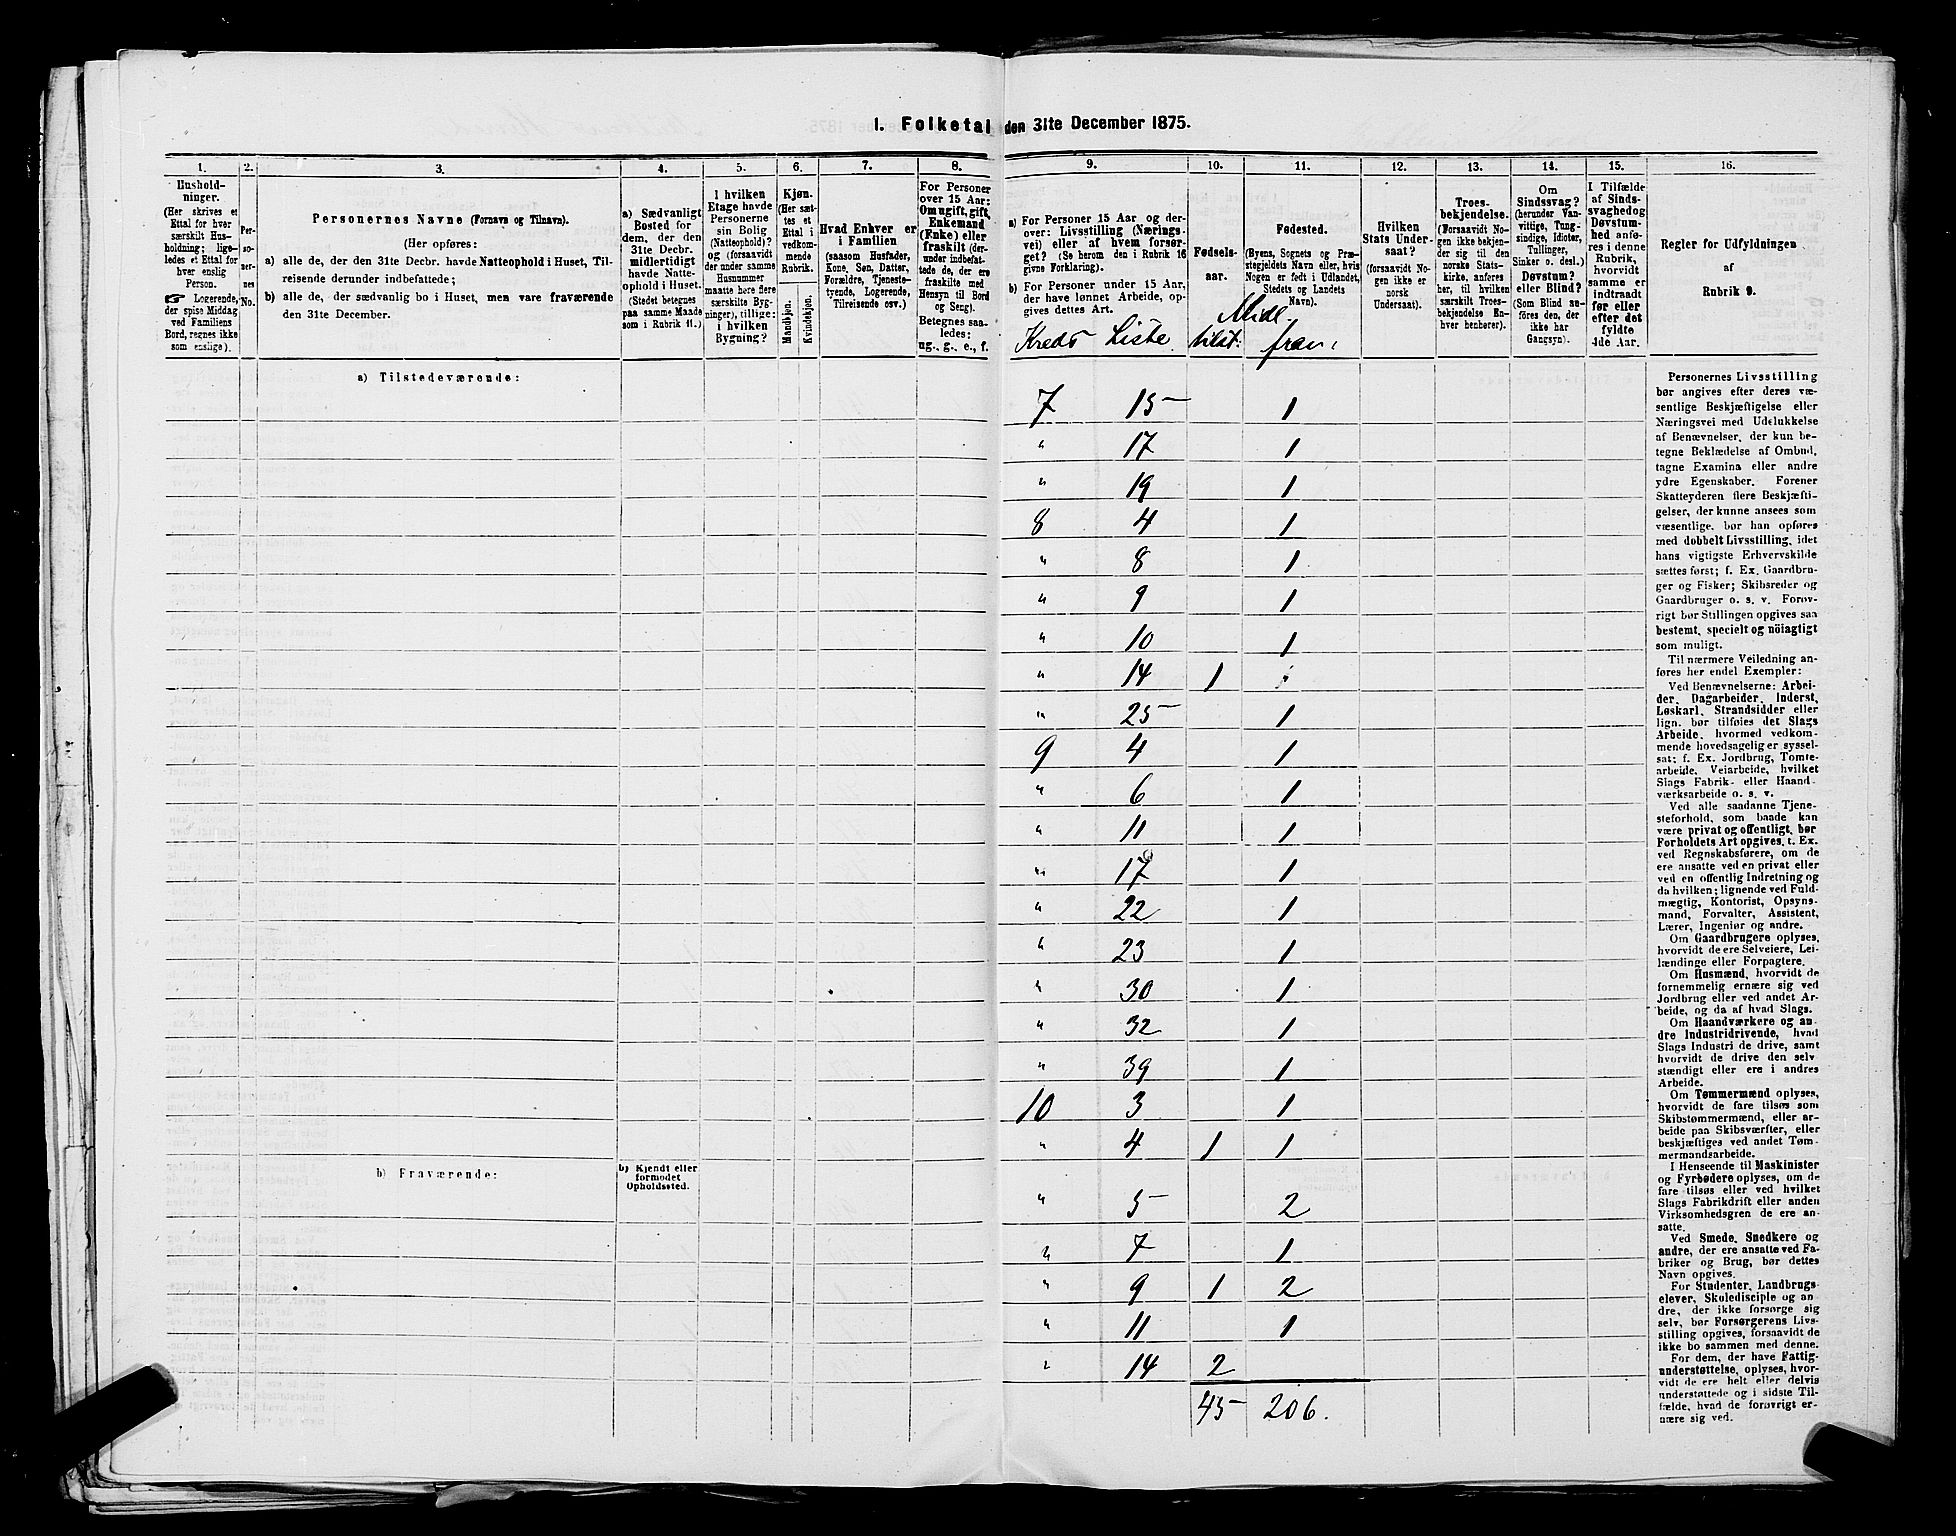 1. Folketal den 31te December 1875.
1. 2. 3. 4. 5. 6. 7. 8. 9. 10. 11. 12. 13. 14. 15. 16.
Hushold-
ninger.
(Her skrives et
Ettal for hver
særskilt Hus-
holdning; lige-
ledes et Ettal for
hver enslig
Person.
☞ Logerende,
der spise Middag
ved Familiens
Bord, regnes ikke
som enslige).
Per-
so-
ner-
nes
No.
Personernes Navne (Fornavn og Tilnavn).
(Her opføres:
a) alle de, der den 31te Decbr. havde Natteophold i Huset, Til-
reisende derunder indbefattede;
b) alle de, der sædvanlig bo i Huset, men vare fraværende
den 31te December.
a) Sædvanligt
Bosted for
dem, der den
31te Decbr.
midlertidigt
havde Natte-
ophold i Huset.
(Stedet betegnes
paa samme Maade
som i Rubrik 11.)
I hvilken
Etage havde
Personerne
sin Bolig
(Natteophold)?
og (forsaavidt
der under samme
Husnummer
maatte høre flere
særskilte Byg-
ninger), tillige:
i hvilken
Bygning?
Kjøn.
(Her sæt-
tes et
Ettal i
vedkom-
mende
Rubrik.
Mandkjøn.
Kvindekjøn.
Hvad Enhver er
i Familien
(saasom Husfader,
Kone, Søn, Datter,
Forældre, Tjeneste-
tyende, Logerende,
Tilreisende osv.)
For Personer
over 15 Aar:
Om ugift, gift,
Enkemand
(Enke) eller
fraskilt (der-
under indbefat-
tede de, der ere
fraskilte med
Hensyn til Bord
og Seng).
Betegnes saa-
ledes:
ug., g., e., f.
a) For Personer 15 Aar og der-
over: Livsstilling (Nærings-
vei) eller af hvem forsør-
get? (Se herom den i Rubrik 16
givne Forklaring).
b) For Personer under 15 Aar,
der have lønnet Arbeide, op-
gives dettes Art.
Kreds Liste
Fødsels-
aar.
Midl.
tilst:
Fødested.
(Byens, Sognets og Præ-
stegjeldets Navn eller, hvis
Nogen er født i Udlandet,
Stedets og Landets
Navn).
frav.
Hvilken
Stats Under-
saat?
(forsaavidt No-
gen ikke er
norsk
Undersaat).
Troes-
bekjendelse.
(Forsaavidt No-
gen ikke bekjen-
der sig til den
norske Stats-
kirke, anføres
her, til hvilken
særskilt Troes-
bekjendelse En-
hver henhører).
Om
Sindssvag?
(herunder Van-
vittige, Tung-
sindige, Idioter,
Tullinger,
Sinker o. desl.)
Døvstum?
eller Blind?
(Som Blind an-
føres den, der
ikke har
Gangsyn).
I Tilfælde
af Sinds-
svaghed og
Døvstum-
hed anfø-
res i denne
Rubrik,
hvorvidt
samme er
indtraadt
før eller
efter det
fyldte
4de Aar.
Regler for Udfyldningen
af
Rubrik 9.
a) Tilstedeværende:
7 15 1
" 17 1
" 19 1
8 4 1
" 8 1
" 9 1
" 10 1
" 14 1
" 25 1
9 4 1
" 6 1
" 11 1
" 17 1
" 22 1
" 23 1
" 30 1
" 32 1
" 39 1
10 3 1
" 4 1 1
b) Fraværende:
b) Kjendt eller
formodet
Opholdssted.
" 5 2
" 7 1
" 9 1 2
" 11 1
" 14 2
45 206.
Personernes Livsstilling
bør angives efter deres væ-
sentlige Beskjæftigelse eller
Næringsvei med Udelukkelse
af Benævnelser, der kun be-
tegne Beklædelse af Ombud,
tagne Examina eller andre
ydre Egenskaber. Forener
Skatteyderen flere Beskjæfti-
gelser, der kunne ansees som
væsentlige, bør han opføres
med dobbelt Livsstilling, idet
hans vigtigste Erhvervskilde
sættes først; f. Ex. Gaardbru-
ger og Fisker; Skibsreder og
Gaardbruger o. s. v. Forøv-
rigt bør Stillingen opgives saa
bestemt, specielt og nöiagtigt
som muligt.
Til nærmere Veiledning an-
føres her endel Exempler:
Ved Benævnelserne: Arbei-
der, Dagarbeider, Inderst,
Løskarl, Strandsidder eller
lign. bør tilføies det Slags
Arbeide, hvormed vedkom-
mende hovedsagelig er syssel-
sat; f. Ex. Jordbrug, Tomte-
arbeide, Veiarbeide, hvilket
Slags Fabrik- eller Haand-
værksarbeide o. s. v.
Ved alle saadanne Tjene-
steforhold, som baade kan
være privat og offentligt, bør
Forholdets Art opgives, t. Ex.
ved Regnskabsførere, om de
ere ansatte ved en privat eller
ved en offentlig Indretning og
da hvilken; lignende ved Fuld-
mægtig, Kontorist, Opsyns-
mand, Forvalter, Assistent,
Lærer, Ingeniør og andre.
Om Gaardbrugere oplyses,
hvorvidt de ere Selveiere, Lei-
lændinge eller Forpagtere.
Om Husmænd, hvorvidt de
fornemmelig ernære sig ved
Jordbrug eller ved andet Ar-
beide, og da af hvad Slags.
Om Haandværkere og an-
dre Industridrivende, hvad
Slags Industri de drive, samt
hvorvidt de drive den selv-
stændigt eller ere i andres
Arbeide.
Om Tømmermænd oplyses,
hvorvidt de fare tilsøs som
Skibstømmermænd, eller ar-
beide paa Skibsværfter, eller
beskjæftiges ved andet Tøm-
mermandsarbeide.
I Henseende til Maskinister
og Fyrbødere oplyses, om de
fare tilsøs eller ved hvilket
Slags Fabrikdrift eller anden
Virksomhedsgren de ere an-
satte.
Ved Smede, Snedkere og
andre, der ere ansatte ved Fa-
briker og Brug, bør dettes
Navn opgives.
For Studenter, Landbrugs-
elever, Skoledisciple og an-
dre, der ikke forsørge sig
selv, bør Forsørgerens Livs-
stilling opgives, forsaavidt de
ikke bo sammen med denne.
For dem, der have Fattig-
understøttelse, oplyses, hvor-
vidt de ere helt eller delvis
understøttede og i sidste Til-
fælde, hvad de forøvrigt er-
nære sig ved.